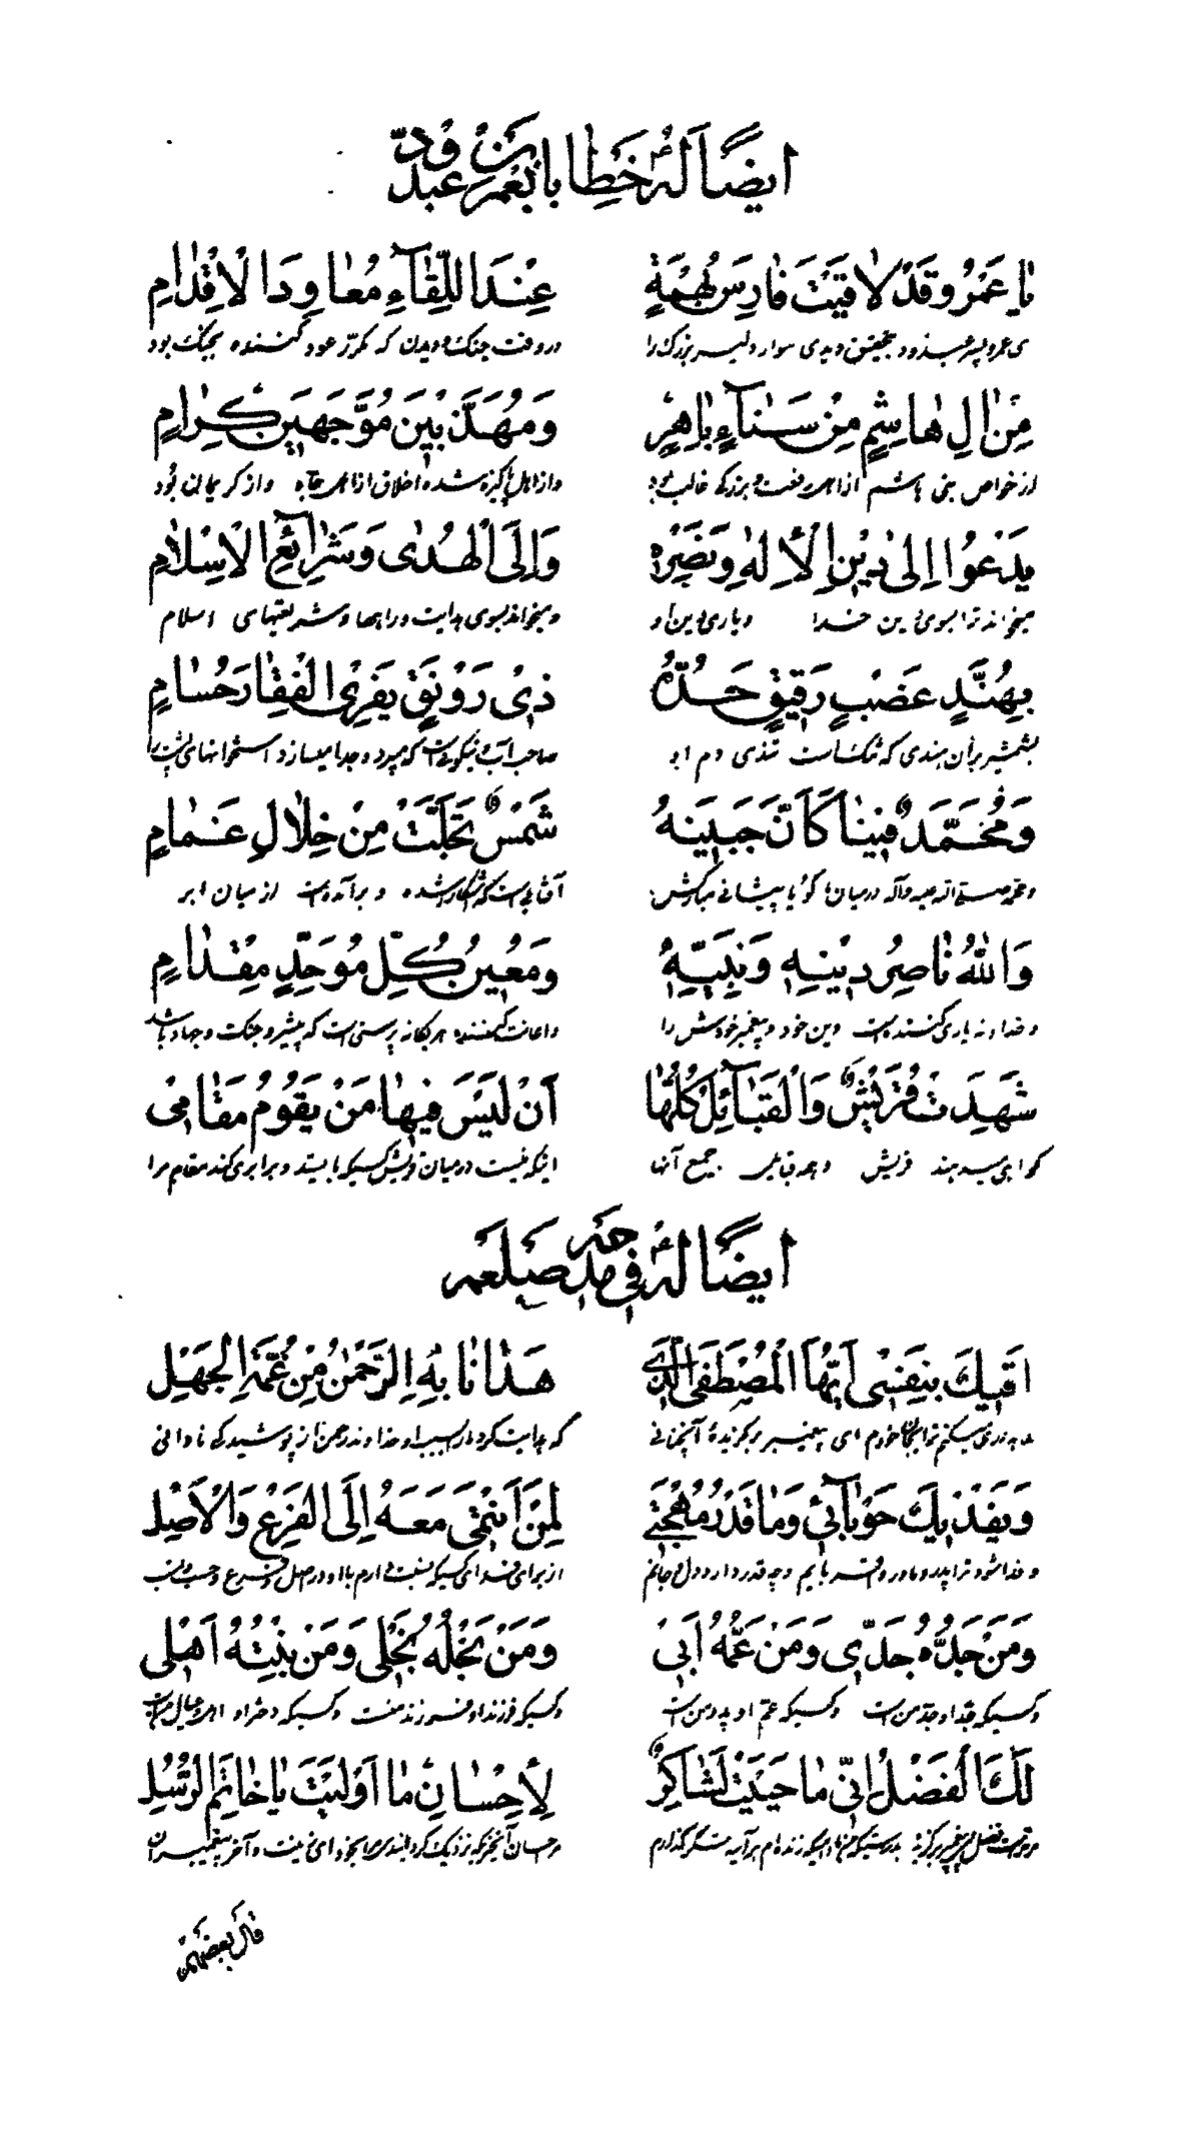 ايضًا لَهُ خِطابًا بعمر بن عبدودّ
يا عَمْرُو قَدْ لاقَيْتَ فارِسَ بُهْمَةٍ عِنْدَ اللِّقآءِ مُعاوِدَ الْاَقْدامِ
ای عمرو پسر عبدود بتحقیق دیدی سوار دلیر بزرگ را در وقت جنک دیدن که مکرّر عود کننده بجنگ بود
مِنْ الِ هاشِمِ مِنْ سَنآءٍ باهِرٍ وَمُهَذَّبِينَ مُوَجَّهِينَ كِرامٍ
از خواص بنی هاشم از اهل رفعت و بزرگی غالب بود و از اهل پاکیزه شده اخلاق از اهل جاه و از کریمان بود
يَدْعُوا اِلىٰ دِينِ الْاِلٰهِ وَنَصْرِهِ وَاِلَى الْهُدٰى وَشَرائِعِ الْاِسْلامِ
میخواند ترا بسوی دین خدا و یاری دین او و میخواند بسوی هدایت و راهها و شریعتهای اسلام
بِمُهَنَّدٍ عَضْبٍ رَقِيقٍ حَدُّهُ ذِى رَوْنَقٍ يَفْرِى الْفِقارَ حُسامٍ
بشمشیر بران هندی که تنک است تندی دم او صاحب آب نیکوئیست که میبرد و جدا میسازد استخوانهای پشت را
وَمُحَمَّدٌ فِينا كَاَنَّ جَبِينَهُ شَمْسٌ تَجَلَّتْ مِنْ خِلالِ غَمامٍ
و محمد صلی الله علیه و آله در میان ما گویا پیشانی مبارکش آفتابیست که آشکار شده و برآمده است از میان ابر
وَاللهُ ناصِرُ دِينِهِ وَنَبِيِّهِ وَمُعِينُ كُلِّ مُوَحِّدٍ مِقْدامٍ
و خداوند یاری کننده است دین خود و پیغمبر خودش را و اعانت کننده هر یگانه پرستی است که پیشرو جنک و جهاد باشد
شَهِدَتْ قُرَيْشٌ وَالْقَبآئِلُ كُلُّها اَنْ لَيْسَ فِيها مَنْ يَقُومُ مَقامِى
گواهی میدهند قریش و همه قبایل جمیع آنها اینکه نیست در میان قریش کسیکه بایستد و برابری کند مقام مرا
ايضًا لَهُ فى مدحه صلعم
اَقِيكَ بِنَفْسِى اَيُّهَا الْمُصْطَفَى الَّذِى هَدانا بِهِ الرَّحْمٰنُ مِنْ غُمَّةِ الْجَهْلِ
نگهداری میکنم ترا بجان خودم ای پیغمبر برگزیدۀ آنچنانی که هدایت کرد ما را بسبب او خداوند رحمن از پوشیدگی نادانی
وَيَفْدِيكَ حَوْبآئِى وَما قَدْرُ مُهْجَتِى لِمَنْ اَنْتَمِى مَعَهُ اِلَى الْفَرْعِ وَالْاَصْلِ
و فدا شود ترا پدر و مادر و اقربایم و چه قدر دارد دل و جانم از برای فدای کسیکه نسبت دارم با او در اصل و فرع و حسب و نسب
وَمَنْ جَدُّهُ جَدِّى وَمَنْ عَمُّهُ اَبِى وَمَنْ نَجْلُهُ نَجْلِى وَمَنْ بِنْتُهُ اَهْلِى
و کسیکه جد او جد من است و کسیکه عمّ او پدر من است و کسیکه فرزند او فرزند منست و کسیکه دختر او اهل و عیال من است
لَكَ الْفَضْلُ اِنِّى ما حَيِيتُ لَشاكِرٌ لِاِحْسانِ ما اَوْلَيْتَ يا خاتَمَ الرُّسْلِ
مر تراست فضل ای پیغمبر برگزیده بدرستیکه من مادامیکه زنده‌ام هر آینه شکر گذارم
قال بعضهم